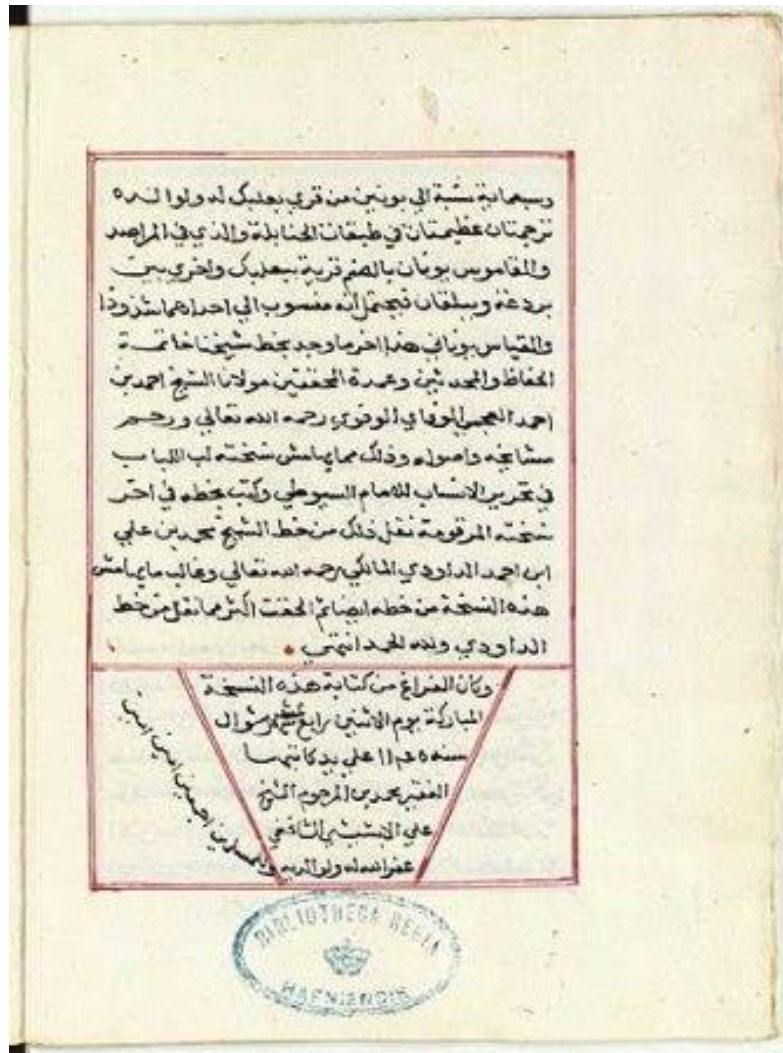 وسبعماية نسبة الي يونين من قري بعلبك له ولوالده
ترجمتان عظيمتان في طبقات الحنابلة والذي في المراصد
والقاموس يونان بالضم قرية ببعلبك واخري بين
بردعة وبيلقان فيحتمل انه منسوب الي احداهما شذوذا
والقياس يوناني هذا اخر ما وجد بخط شيخنا خاتمة
الحفاظ والمحدثين وعمدة المحققين مولانا الشيخ احمد بن
احمد العجمي الوفاي رحمه الله تعالي ورحم
مشايخه واصوله وذلك مما بهامش نسخته لب اللباب
في تحرير الانساب للامام السيوطي وكتب بخطه في اخر
نسخته المرقومة نقل ذلك من خط الشيخ محمد بن علي
ابن احمد الداودي المالكي رحمه الله تعالي وغالب ما بهامش
هذه النسخة من خطه ايضا ثم الحقت اكثر مما نقل من خط
الداودي ولله الحمد انتهي
وكان الفراغ من كتابة هذه النسخة
المباركة يوم الاثنين رابع عشر شهر شوال
سنه ١١٤٥ علي يد كاتبها
الفقير محمد بن المرحوم الشيخ
علي الابشيشي الشافعي
غفر الله له ولوالديه
والمسلمين اجمعين امين امين
BIBLIOTHECA REGIA
HAFNIENSIS